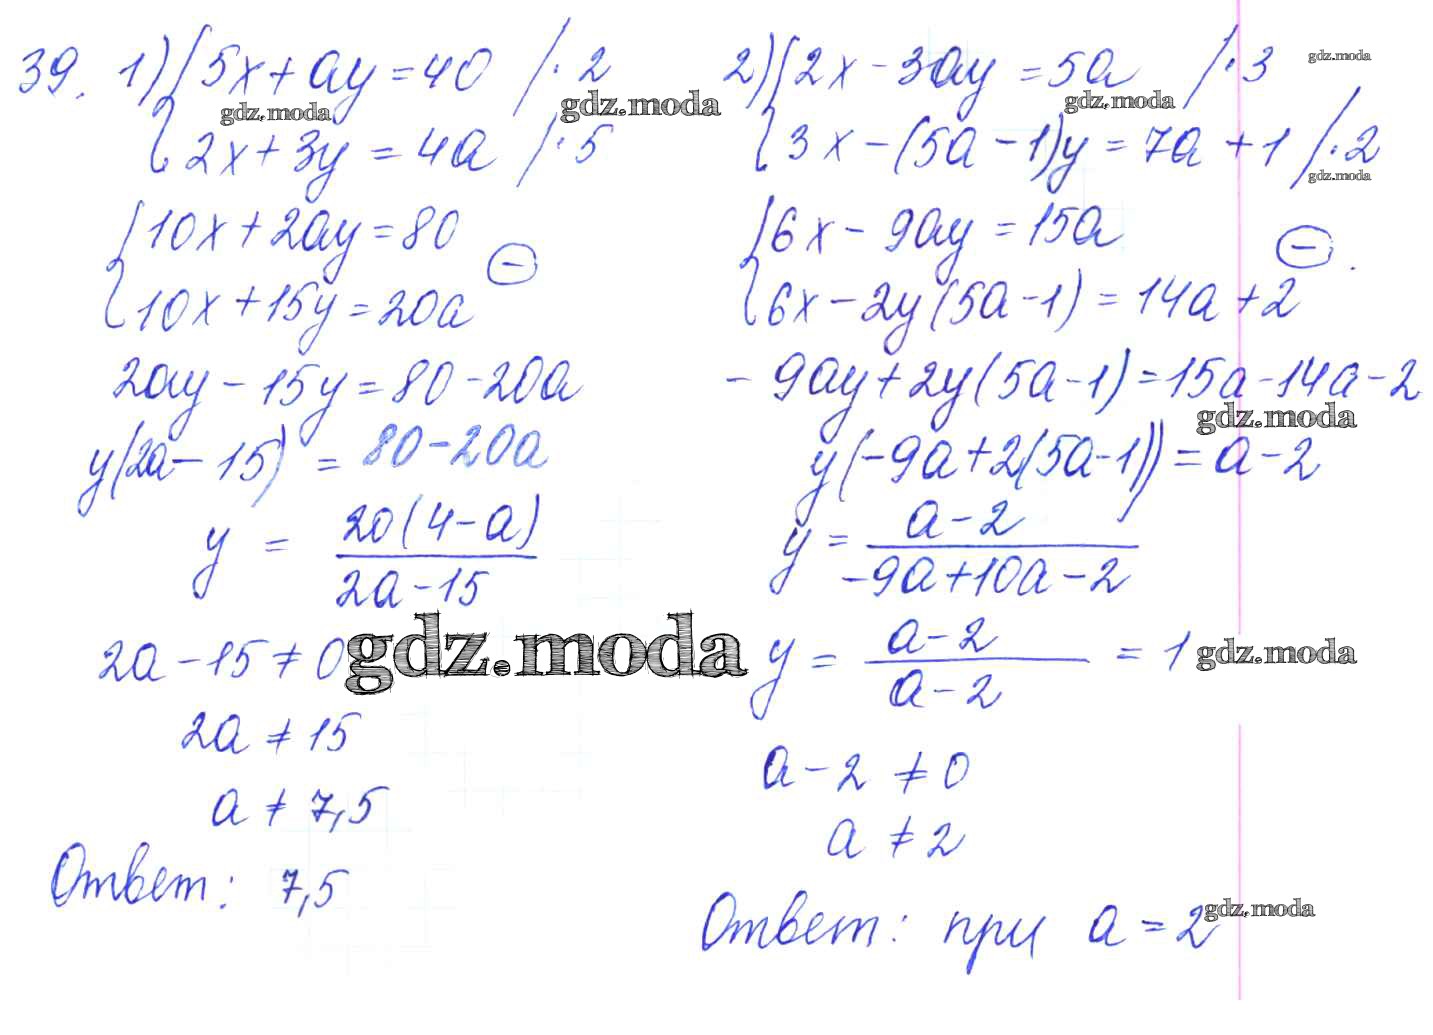 39. 1) { 5x + ay = 40 / · 2
gdz.moda gdz.moda
2x + 3y = 4a / · 5
{ 10x + 2ay = 80
10x + 15y = 20a
⊖
2ay - 15y = 80 - 20a
y(2a - 15) = 80 - 20a
y = 20(4 - a) / 2a - 15
2a - 15 ≠ 0
gdz.moda
2a ≠ 15
a ≠ 7,5
Ответ: 7,5
2) { 2x - 3ay = 5a / · 3
gdz.moda
gdz.moda
3x - (5a - 1)y = 7a + 1 / · 2
gdz.moda
{ 6x - 9ay = 15a
6x - 2y(5a - 1) = 14a + 2
⊖.
- 9ay + 2y(5a - 1) = 15a - 14a - 2
gdz.moda
y(-9a + 2(5a - 1)) = a - 2
y = a - 2 / -9a + 10a - 2
y = a - 2 / a - 2 = 1
gdz.moda
a - 2 ≠ 0
a ≠ 2
Ответ: при a = 2
gdz.moda